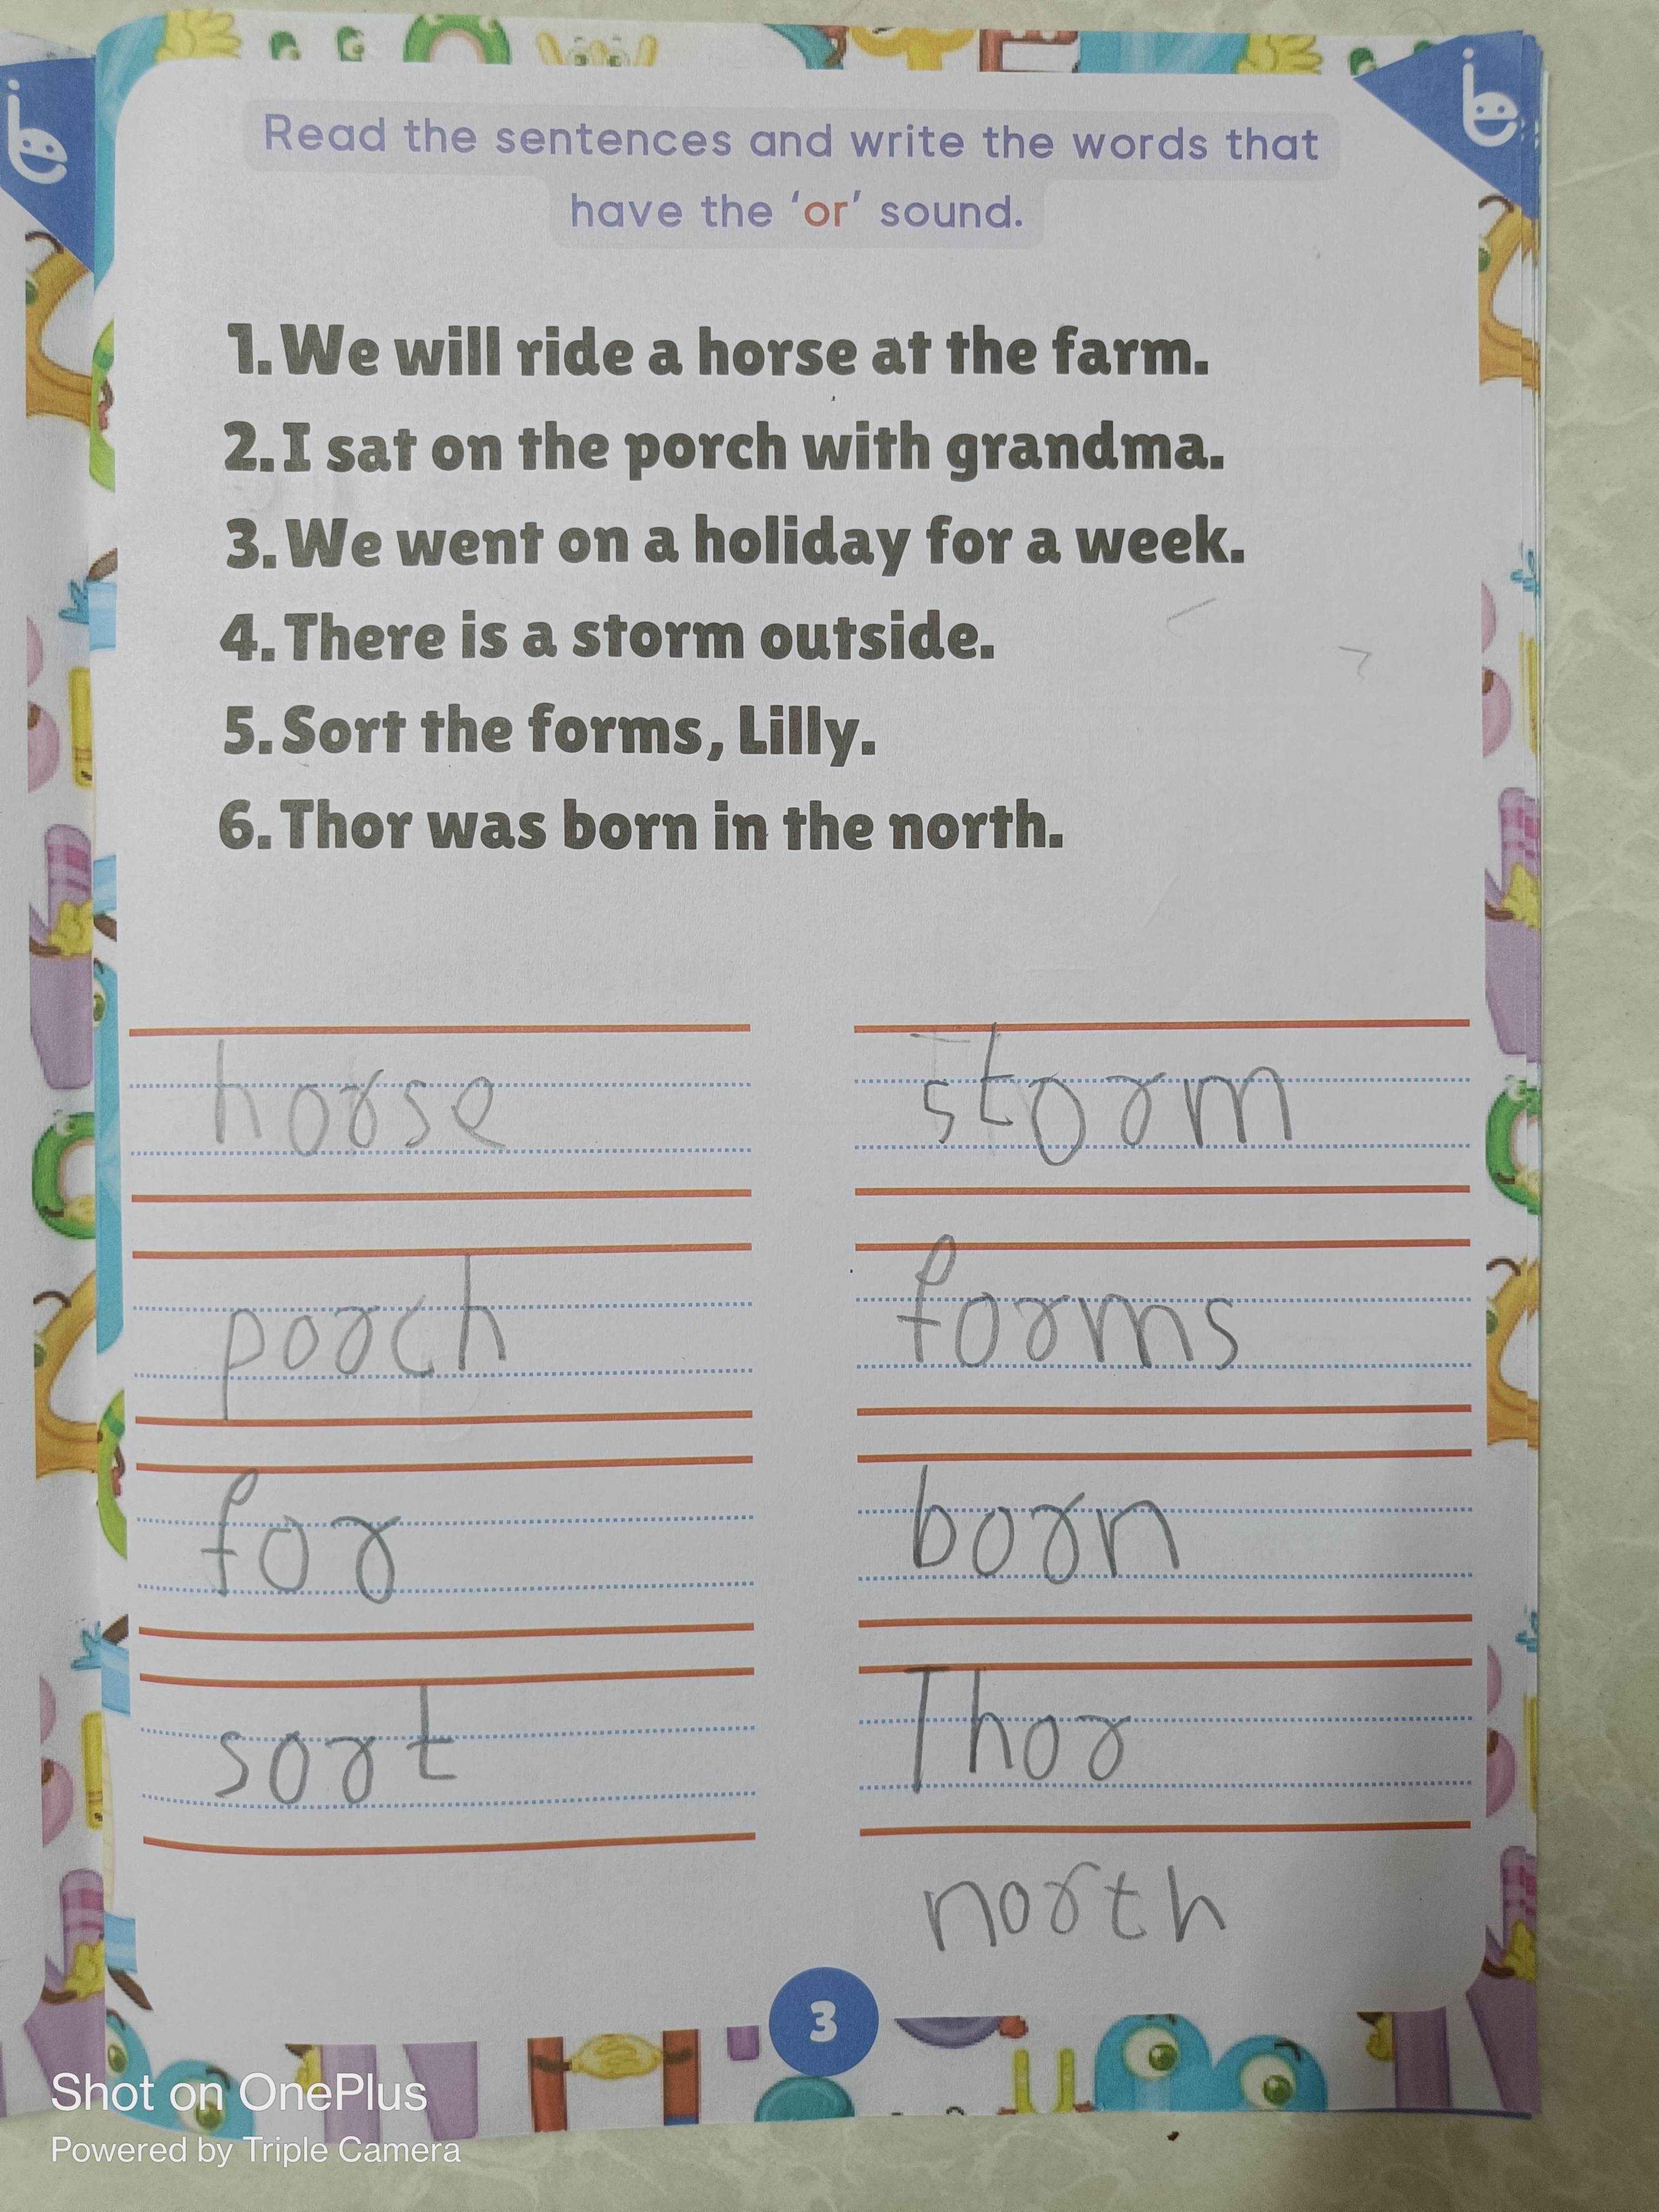 Read the sentences and write the words that
have the ‘or’ sound.
1. We will ride a horse at the farm.
2. I sat on the porch with grandma.
3. We went on a holiday for a week.
4. There is a storm outside.
5. Sort the forms, Lilly.
6. Thor was born in the north.
horse
storm
porch
forms
for
born
sort
Thor
north
3
Shot on OnePlus
Powered by Triple Camera